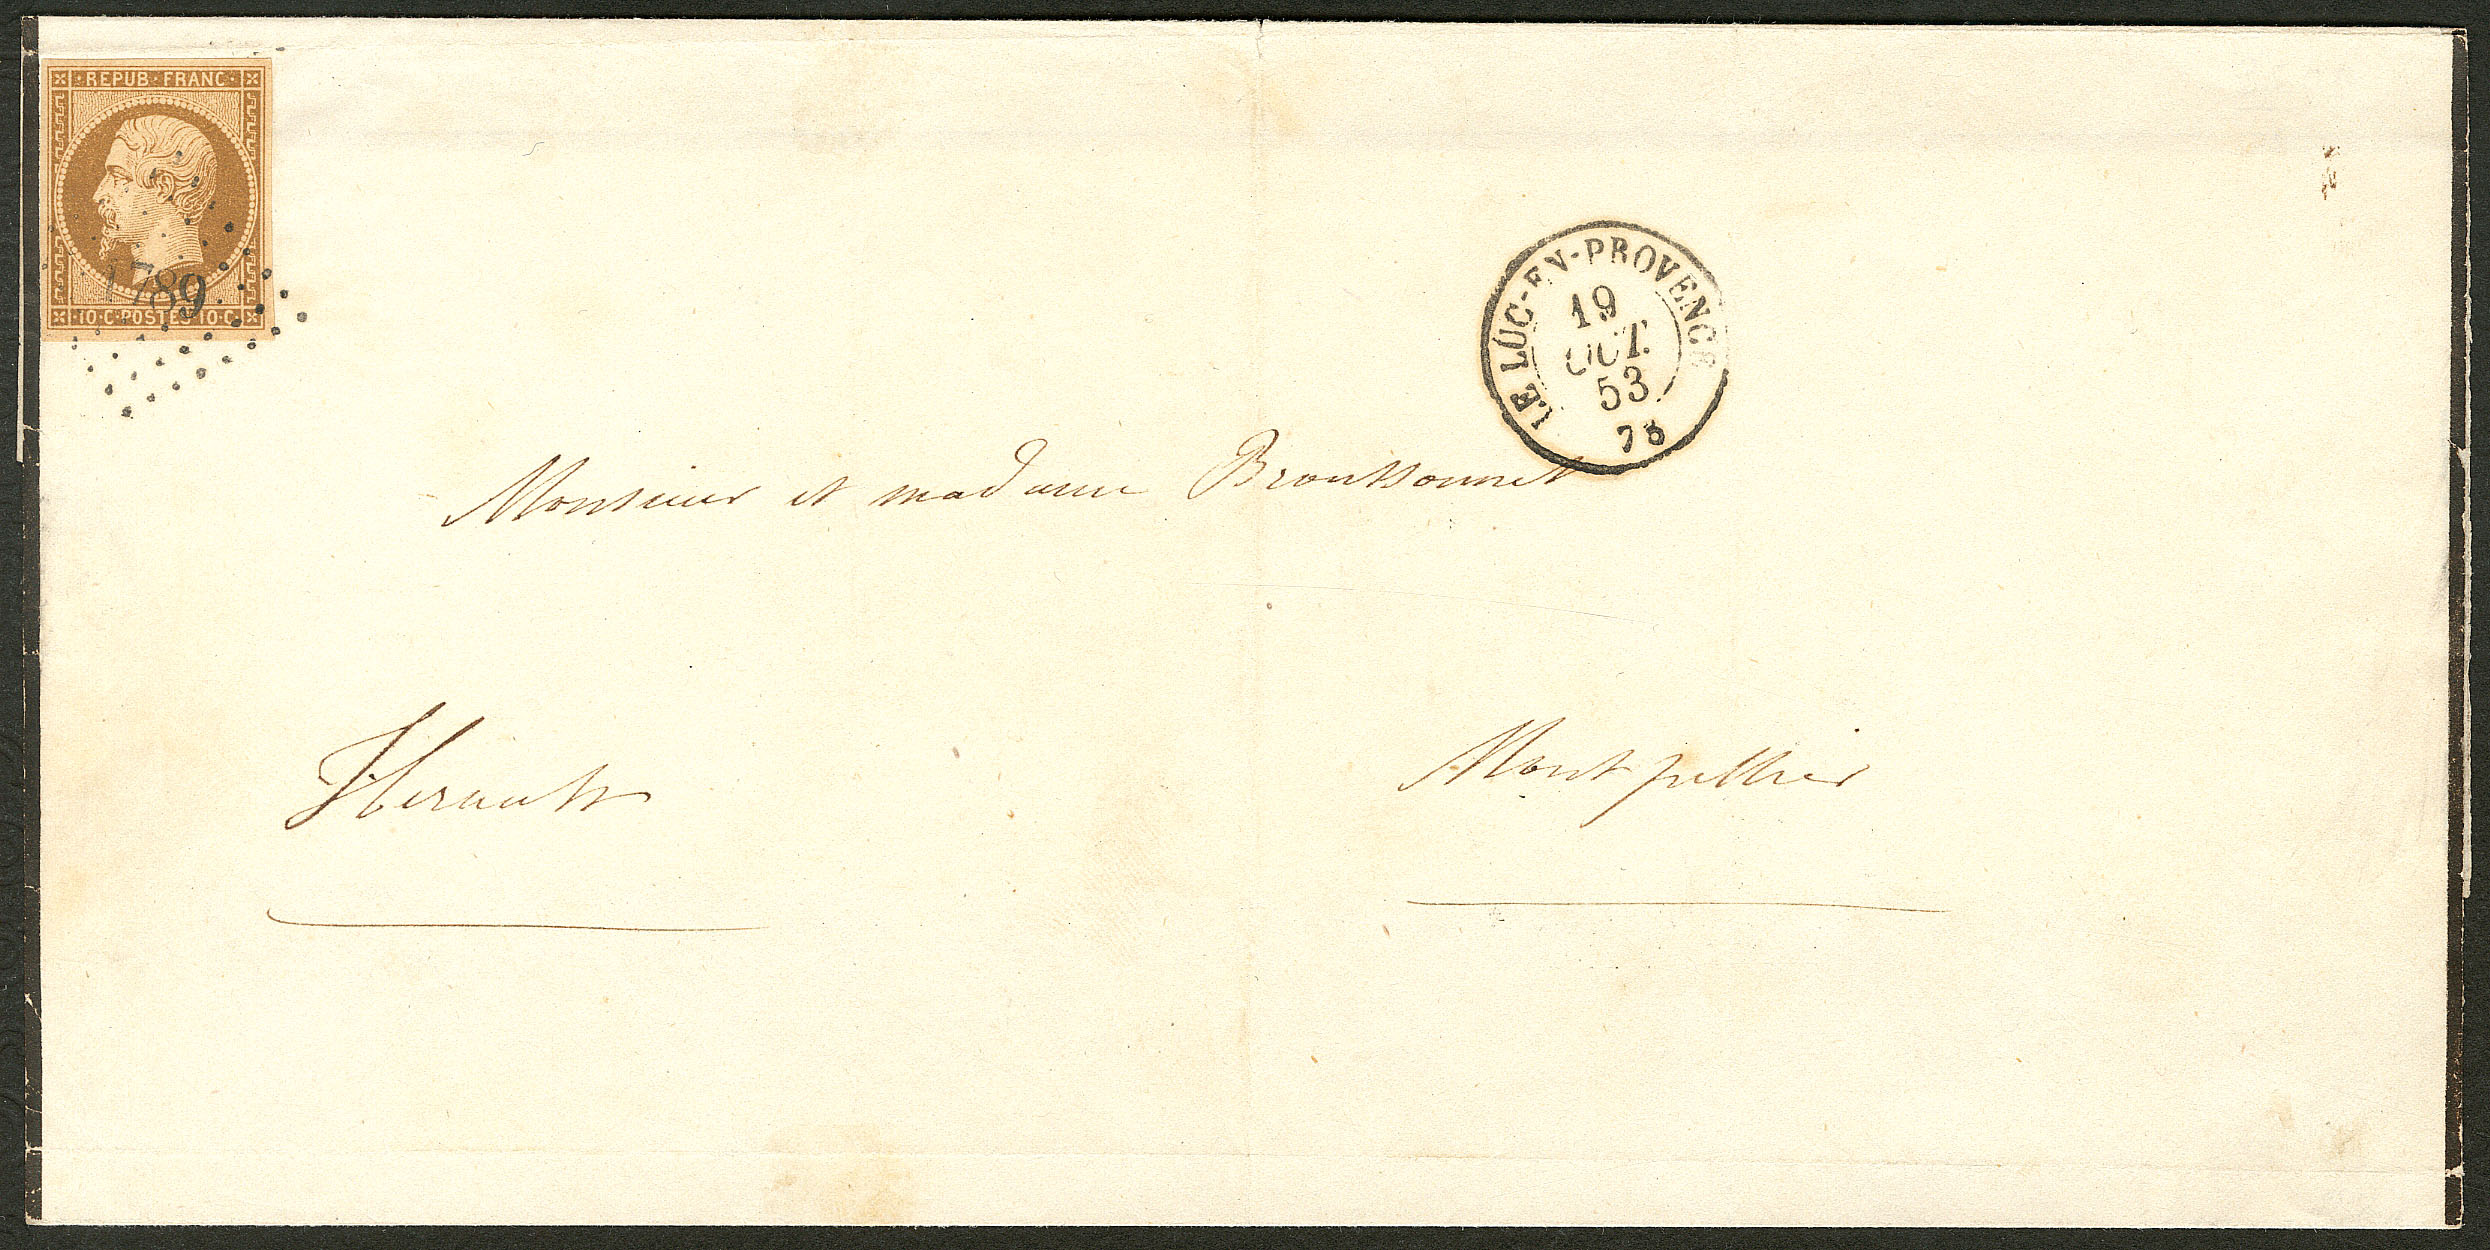 REPUB·FRANC·
1789
10·C·POSTES·10·C·
LE LUC-EN-PROVENCE
19
OCT.
53
78
Monsieur et madame Broussonnet
Herault
Montpellier